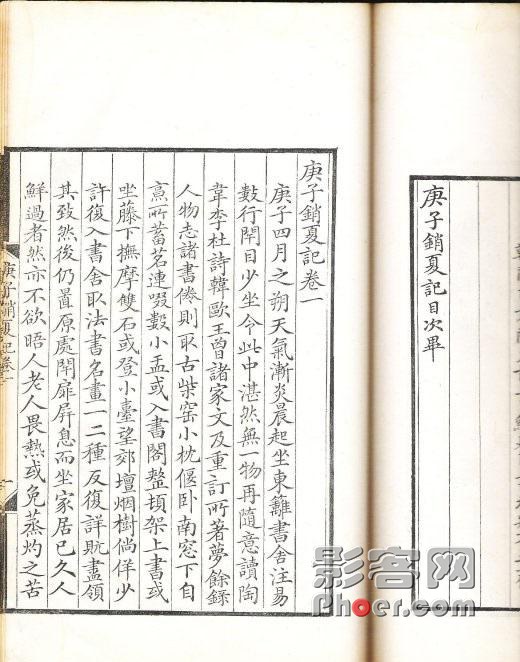 庚子銷夏記目次畢
庚子銷夏記卷一
庚子四月之朔天氣漸炎晨起坐東籬書舍注易
數行閉目少坐令此中湛然無一物再隨意讀陶
韋李杜詩韓歐王曾諸家文及重訂所著夢餘錄
人物志諸書倦則取古柴窑小枕偃卧南窓下自
烹所蓄茗連啜數小盂或入書閣整頓架上書或
坐藤下撫摩雙石或登小臺望郊壇烟樹倘佯少
許復入書舍取法書名畫一二種反復詳玩盡領
其致然後仍置原處閉扉屏息而坐家居已久人
鮮過者然亦不欲晤人老人畏熱或免蒸灼之苦
庚子銷夏記卷一
一
影客网
Phoer.com